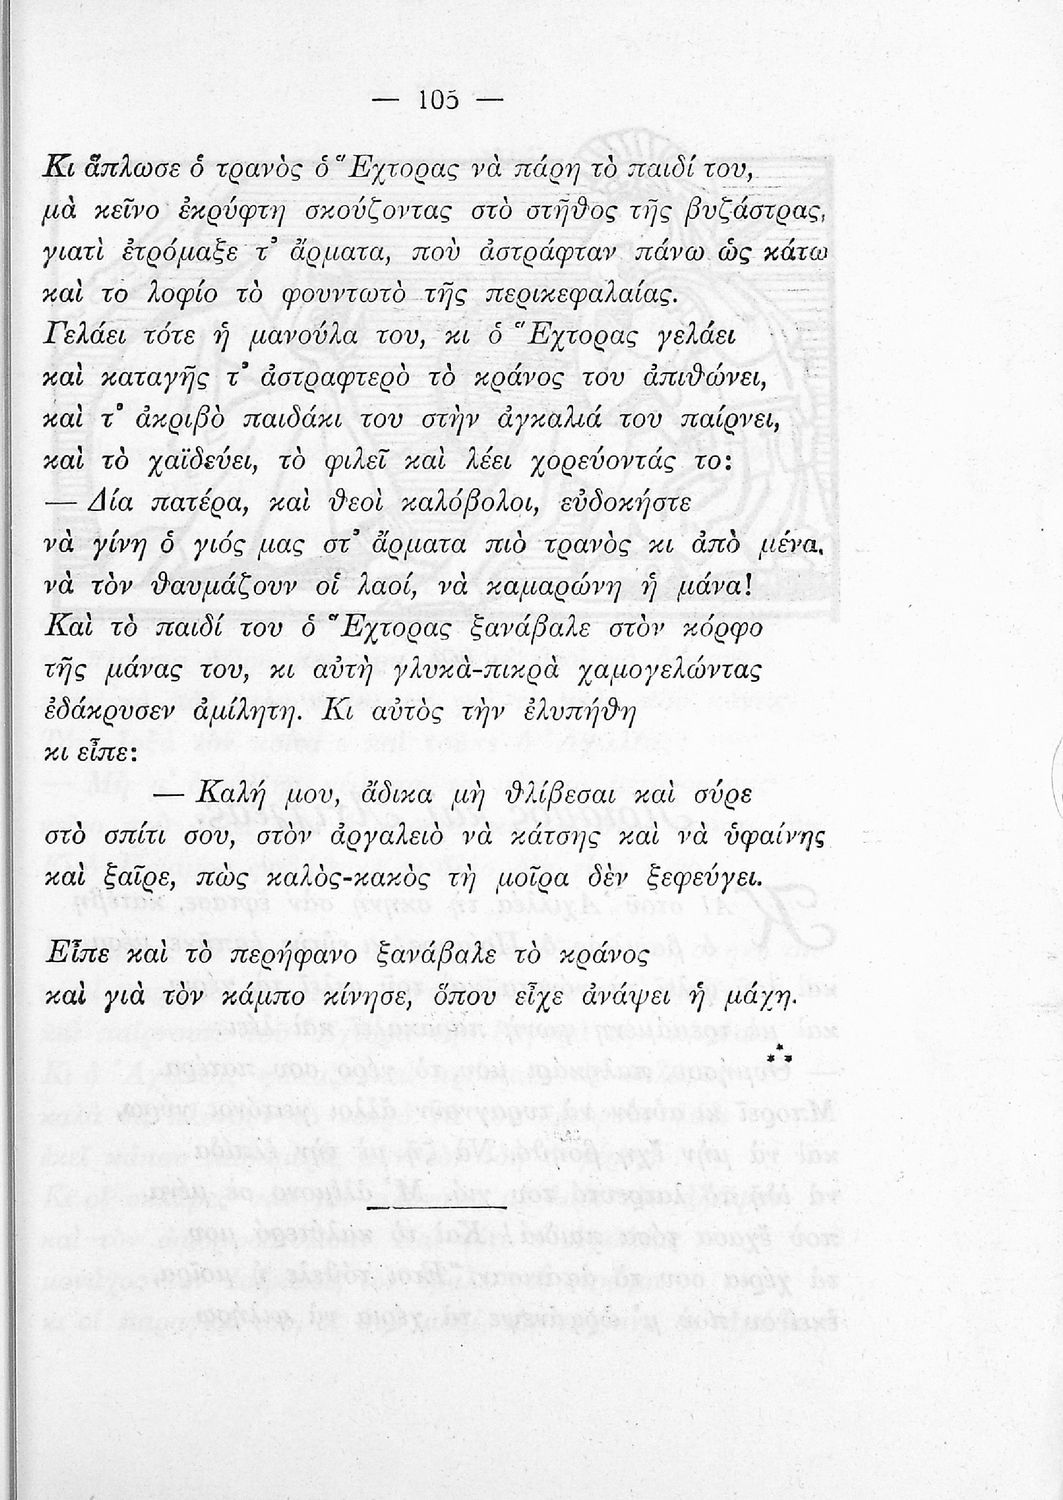 — 105 —
Κι ἅπλωσε ὁ τρανὸς ὁ Ἕχτορας νὰ πάρη τὸ παιδί του,
μὰ κεῖνο ἐκρύφτη σκούζοντας στὸ στῆθος τῆς βυζάστρας,
γιατὶ ἐτρόμαξε τ᾽ ἄρματα, ποὺ ἀστράφταν πάνω ὡς κάτω
καὶ το λοφίο τὸ φουντωτὸ τῆς περικεφαλαίας.
Γελάει τότε ἡ μανούλα του, κι ὁ Ἕχτορας γελάει
καὶ καταγῆς τ᾽ ἀστραφτερὸ τὸ κράνος του ἀπιθώνει,
καὶ τ᾽ ἀκριβὸ παιδάκι του στὴν ἀγκαλιά του παίρνει,
καὶ τὸ χαϊδεύει, τὸ φιλεῖ καὶ λέει χορεύοντάς το:
— Δία πατέρα, καὶ θεοὶ καλόβολοι, εὐδοκήστε
νὰ γίνη ὁ γιός μας στ᾽ ἄρματα πιὸ τρανὸς κι ἀπὸ μένα,
νὰ τὸν θαυμάζουν οἱ λαοί, νὰ καμαρώνη ἡ μάνα!
Καὶ τὸ παιδί του ὁ Ἕχτορας ξανάβαλε στὸν κόρφο
τῆς μάνας του, κι αὐτὴ γλυκὰ-πικρὰ χαμογελώντας
ἐδάκρυσεν ἀμίλητη. Κι αὐτὸς τὴν ἐλυπήθη
κι εἶπε:
— Καλή μου, ἄδικα μὴ θλίβεσαι καὶ σύρε
στὸ σπίτι σου, στὸν ἀργαλειὸ νὰ κάτσης καὶ νὰ ὑφαίνης
καὶ ξαῖρε, πὼς καλὸς-κακὸς τὴ μοῖρα δὲν ξεφεύγει.
Εἶπε καὶ τὸ περήφανο ξανάβαλε τὸ κράνος
καὶ γιὰ τὸν κάμπο κίνησε, ὅπου εἶχε ἀνάψει ἡ μάχη.
⁂